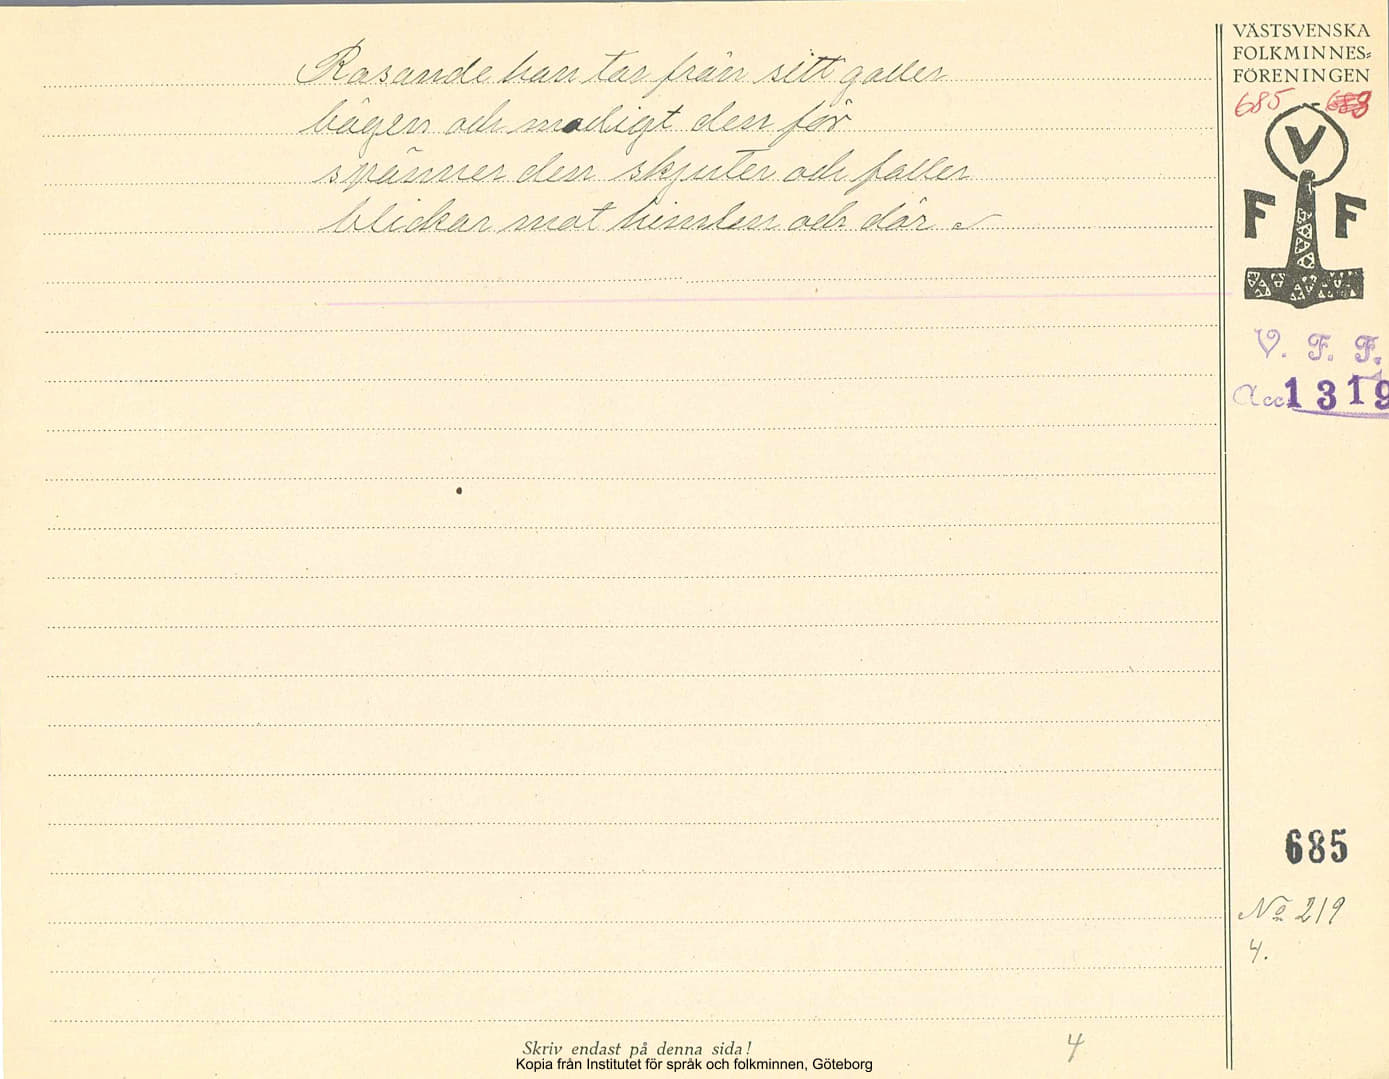 Rasande han tar från sitt galler
bågen och modigt den för
spänner den skjuter och faller
blickar mot himlen och dör.
VÄSTSVENSKA
FOLKMINNES=
FÖRENINGEN
685 -
V
F F
V. F. F.
Acc. 1319
685
No 219
4.
Skriv endast på denna sida!
4
Kopia från Institutet för språk och folkminnen, Göteborg